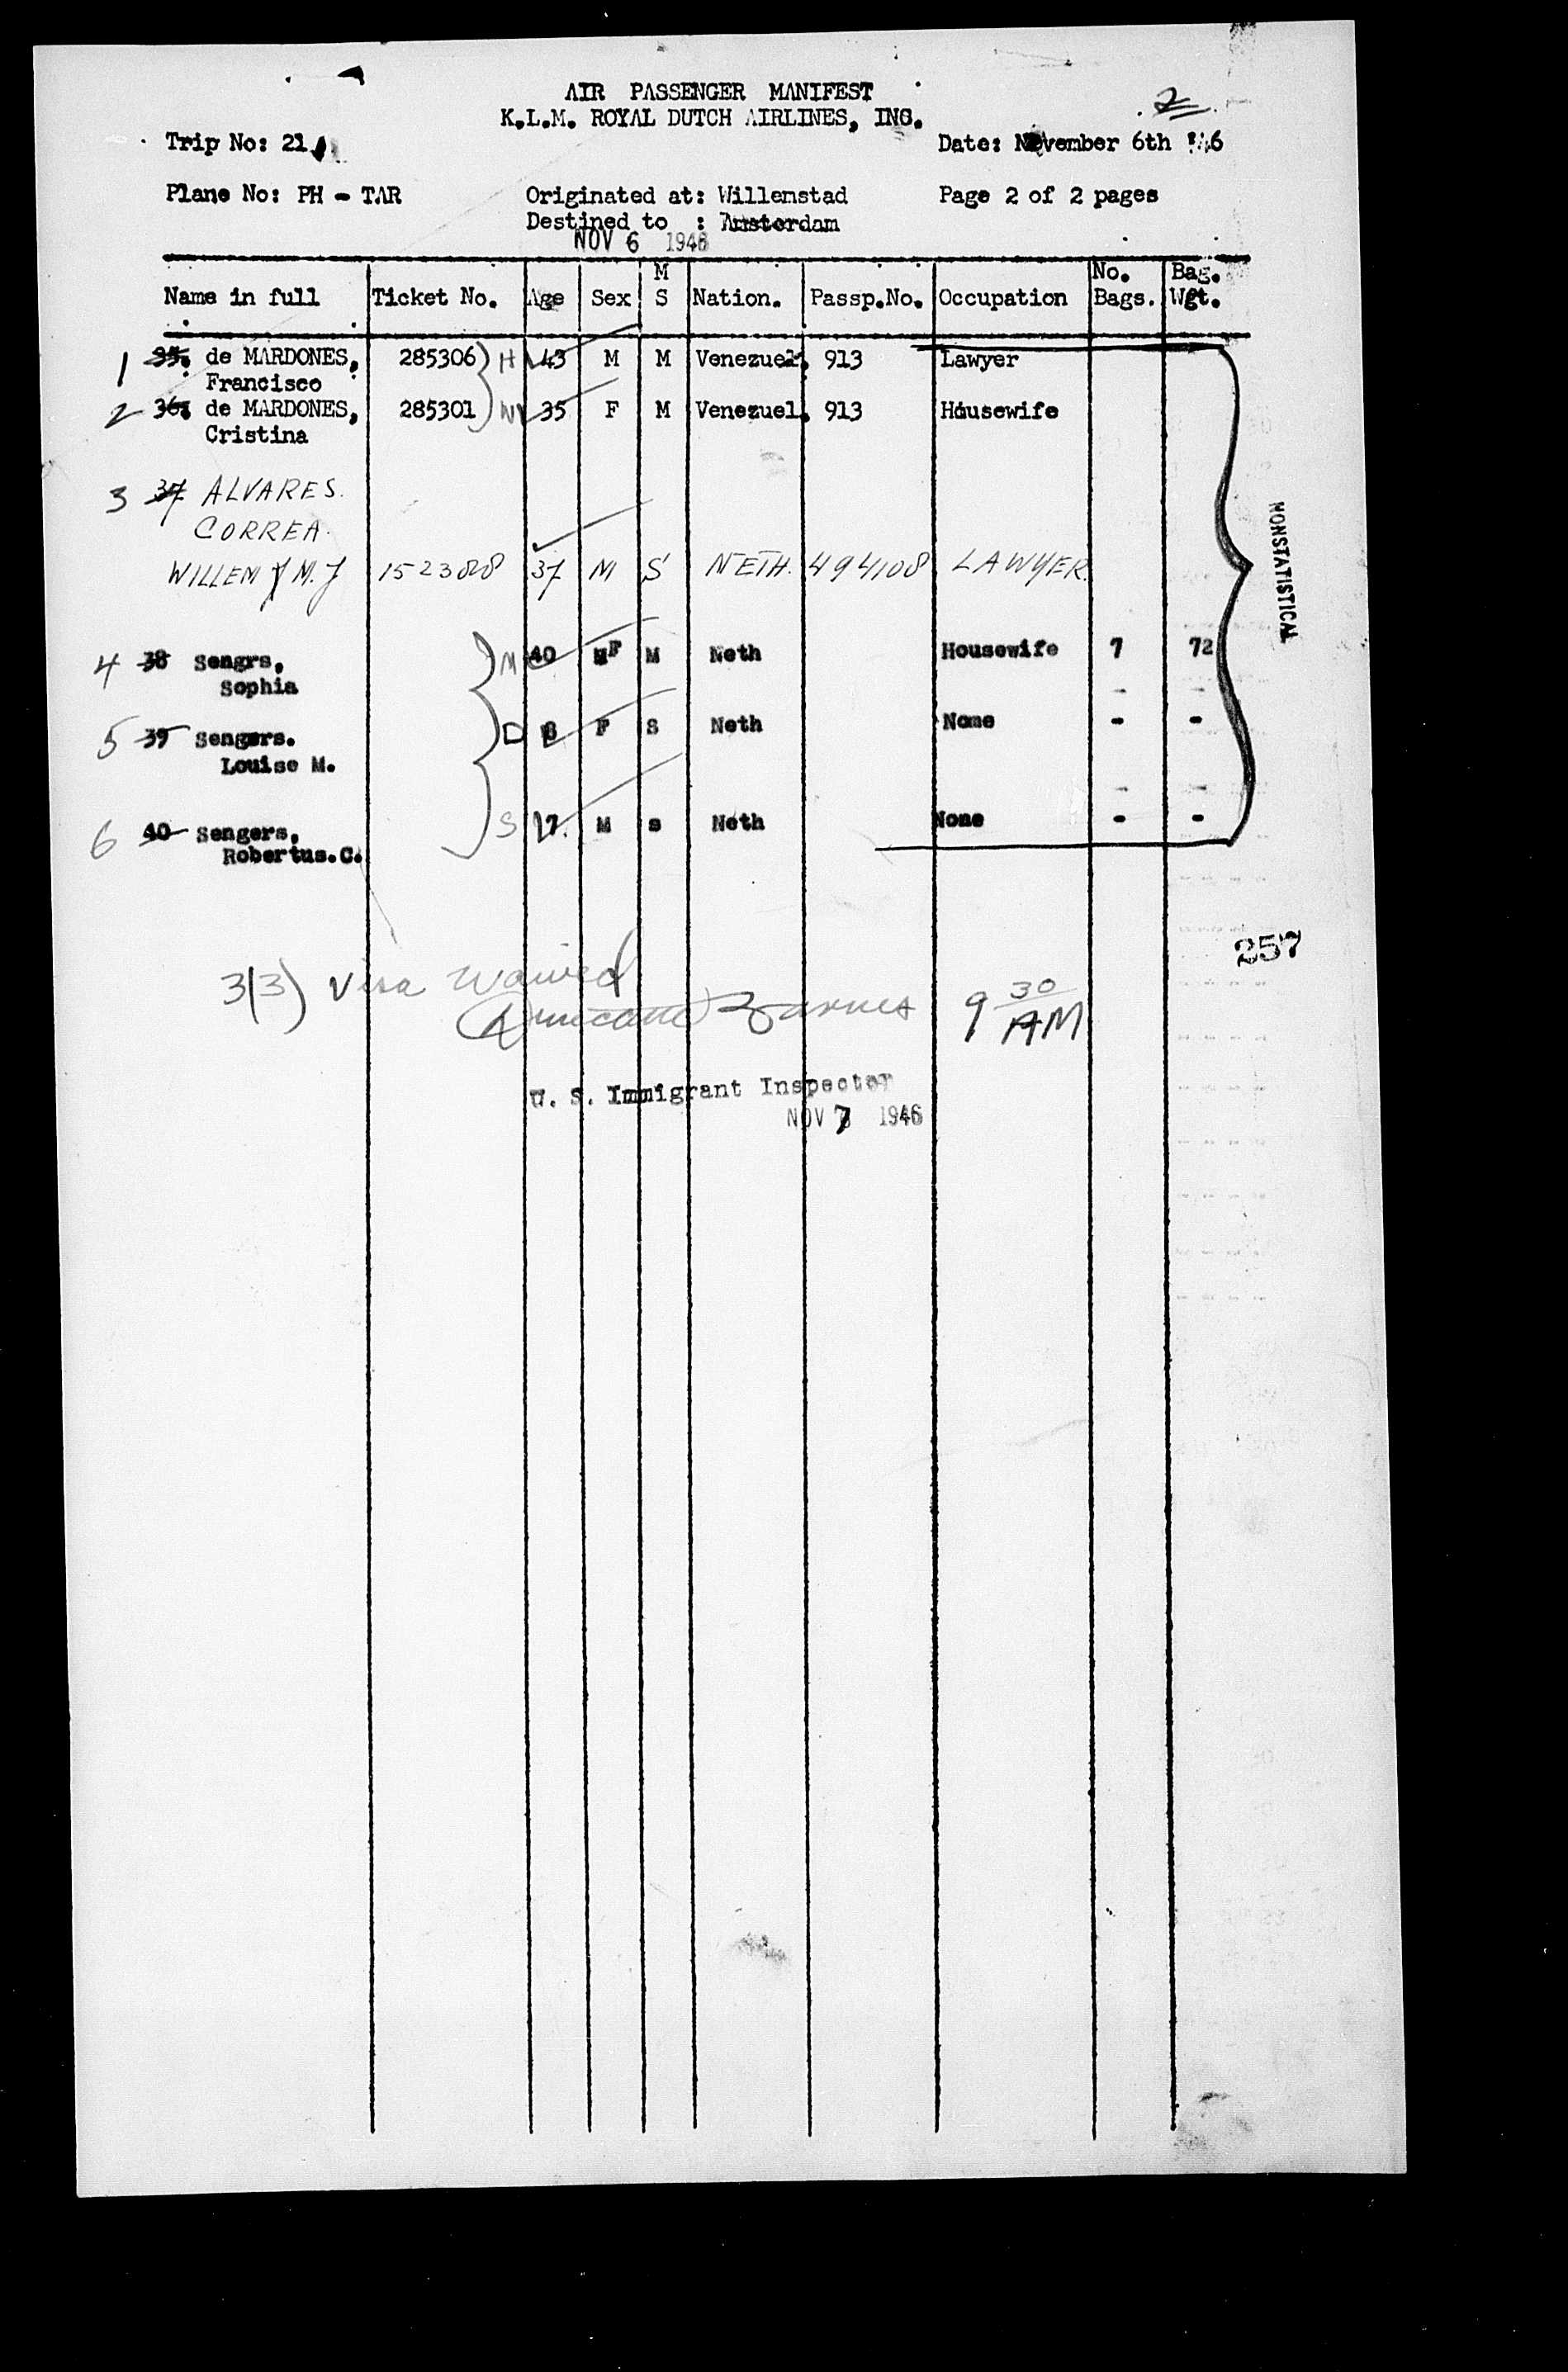 AIR PASSENGER MANIFEST
K.L.M. ROYAL DUTCH AIRLINES, INC.
2
Trip No: 21
Date: November 6th '46
Plane No: PH - TAR
Originated at: Willemstad
Page 2 of 2 pages
Destined to : Amsterdam
NOV 6 1946
Name in full Ticket No. Age Sex M S Nation. Passp.No. Occupation No. Bags. Bag. Wgt.
1 35. de MARDONES, 285306 H 43 M M Venezuel. 913 Lawyer
Francisco
2 36. de MARDONES, 285301 W 35 F M Venezuel. 913 Housewife
Cristina
3 37 ALVARES.
CORREA.
WILLEM M.J 152388 37 M S NETH. 494108 LAWYER.
NONSTATISTICAL
4 38 Sengrs, M 40 F M Neth Housewife 7 72
Sophia
5 39 Sengers. D 8 F S Neth None - -
Louise M.
6 40 Sengers, S 17. M s Neth None - -
Robertus.C.
257
3(3) Visa Waived
9 30 AM
U. S. Immigrant Inspector
NOV 7 1946